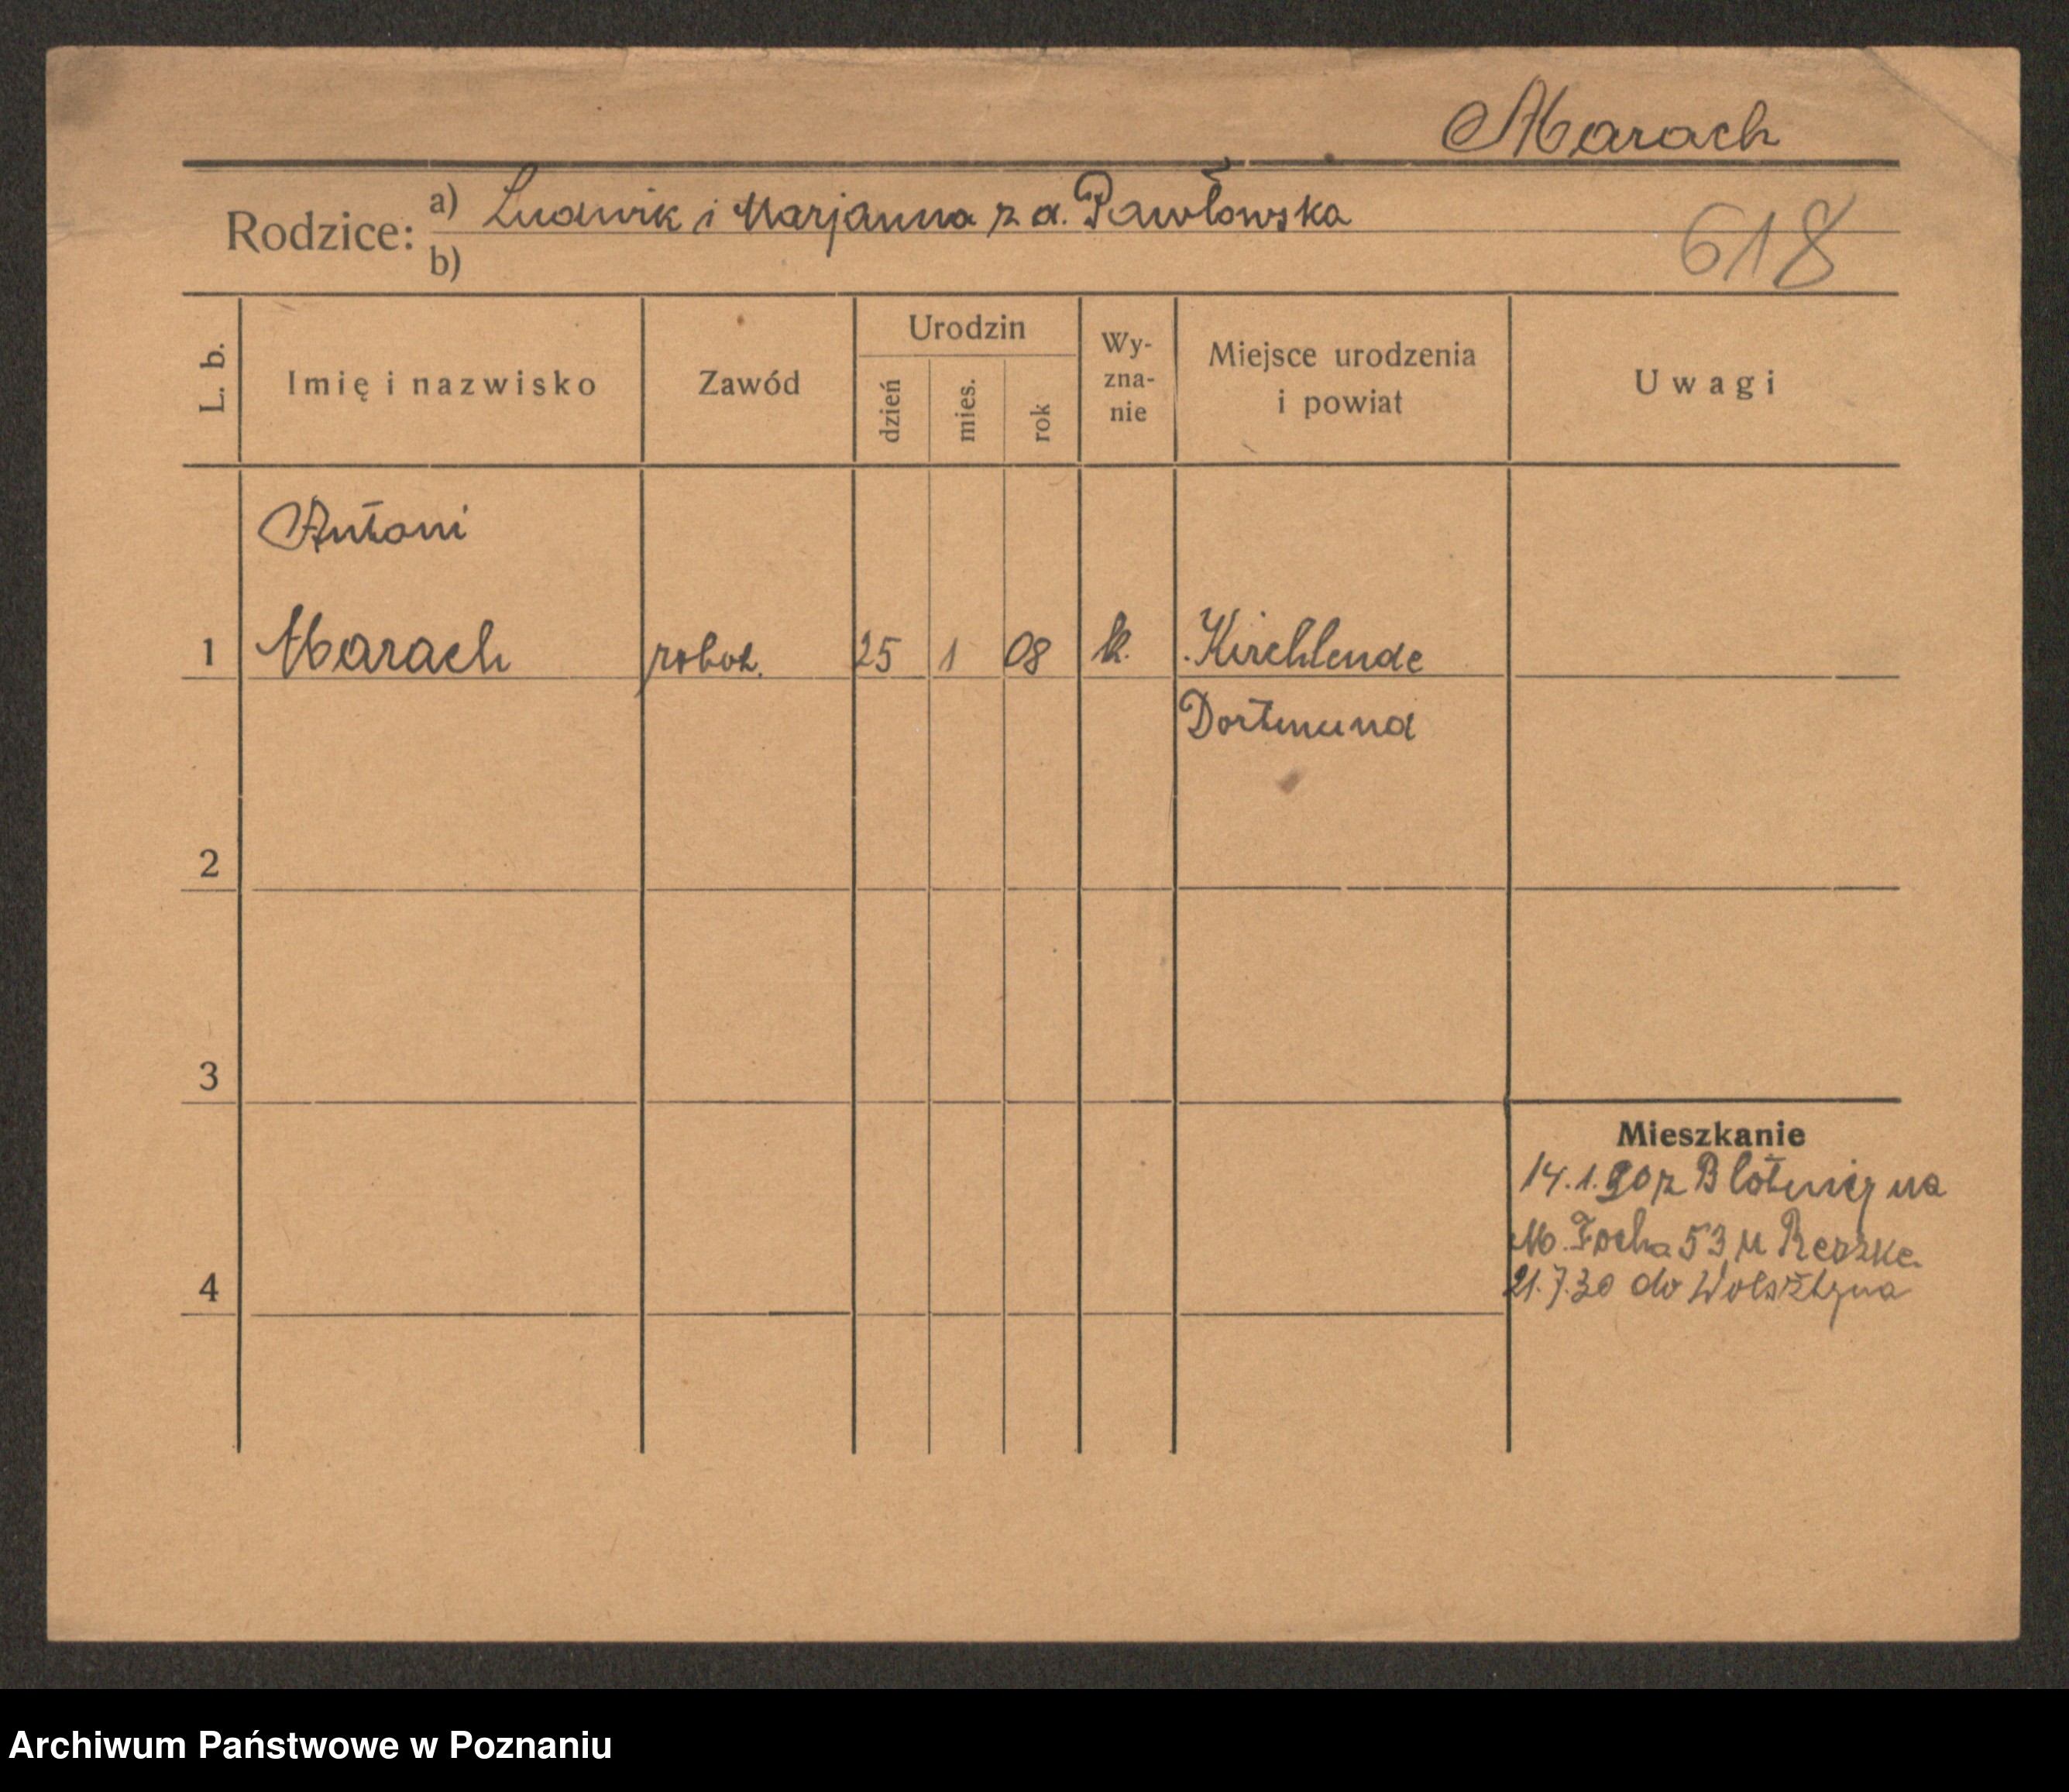 Marach
Rodzice: a) Ludwik i Marjanna z d. Pawłowska
b)
618
L. b.
Imię i nazwisko
Zawód
Urodzin
dzień
mies.
rok
Wy-
zna-
nie
Miejsce urodzenia
i powiat
Uwagi
Antoni
1 Marach robot. 25 1 08 k. Kirchlende
Dortmund
2
3
4
Mieszkanie
14.1.30 z Błotnicy na
M. Focha 53 u Reszke
21.7.30 do Wolsztyna
Archiwum Państwowe w Poznaniu